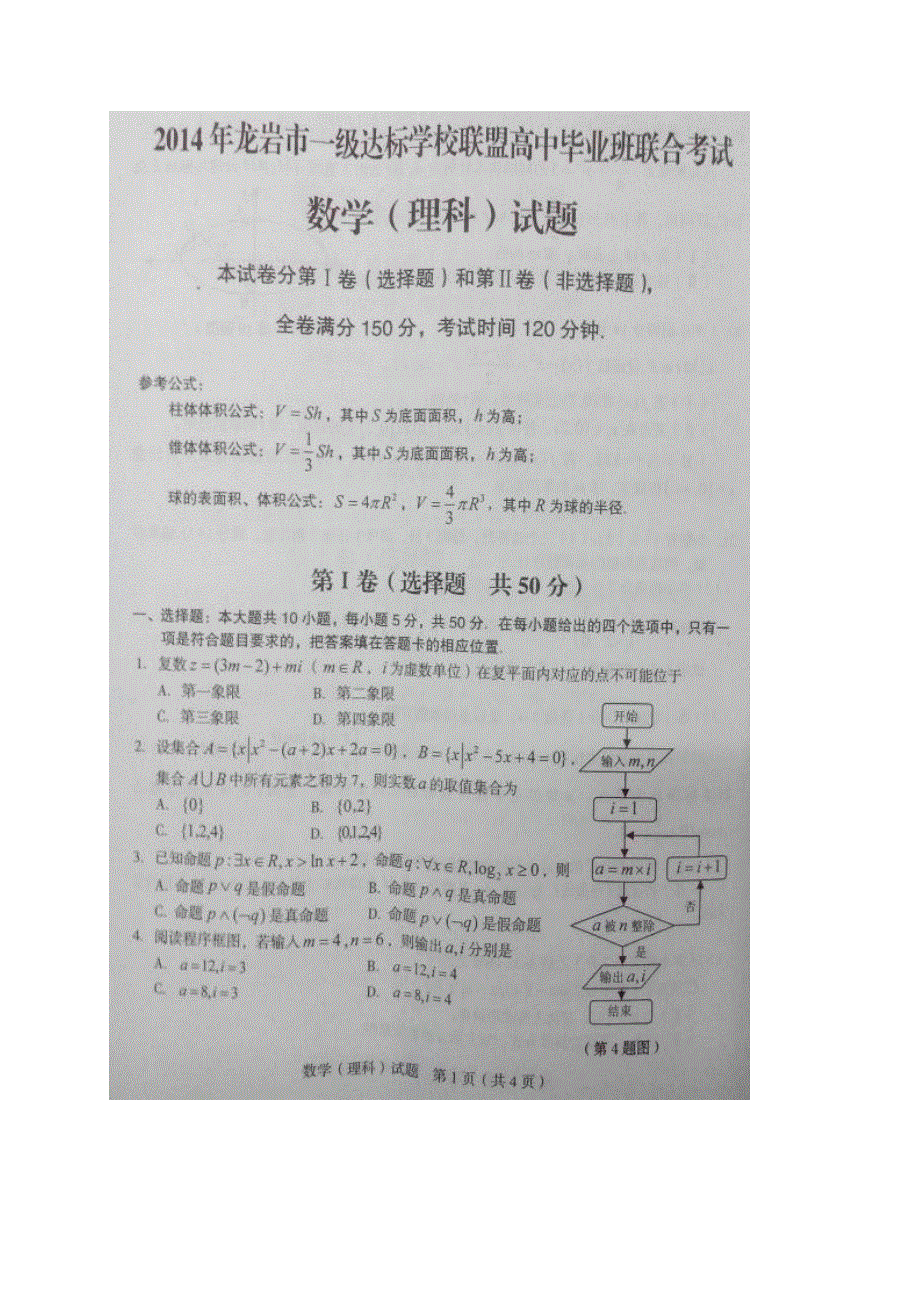 2014年龙岩市一级达标学校联盟高中毕业班联合考试
数学（理科）试题
本试卷分第Ⅰ卷（选择题）和第Ⅱ卷（非选择题），
全卷满分150分，考试时间120分钟.
参考公式：
柱体体积公式：V=Sh，其中S为底面面积，h为高；
锥体体积公式：V=1/3Sh，其中S为底面面积，h为高；
球的表面积、体积公式：S=4πR²，V=4/3πR³，其中R为球的半径.
第Ⅰ卷（选择题 共50分）
一、选择题：本大题共10小题，每小题5分，共50分．在每小题给出的四个选项中，只有一
项是符合题目要求的，把答案填在答题卡的相应位置.
1. 复数z=(3m-2)+mi（m∈R，i为虚数单位）在复平面内对应的点不可能位于
A. 第一象限 B. 第二象限
C. 第三象限 D. 第四象限
2. 设集合A={x|x²-(a+2)x+2a=0}，B={x|x²-5x+4=0}，
集合A∪B中所有元素之和为7，则实数a的取值集合为
A. {0} B. {0,2}
C. {1,2,4} D. {0,1,2,4}
3. 已知命题p:∃x∈R,x>ln x+2，命题q:∀x∈R,log₂x≥0，则
A. 命题p∨q是假命题 B. 命题p∧q是真命题
C. 命题p∧(¬q)是真命题 D. 命题p∨(¬q)是假命题
4. 阅读程序框图，若输入m=4,n=6，则输出a,i分别是
A. a=12,i=3 B. a=12,i=4
C. a=8,i=3 D. a=8,i=4
开始
输入m,n
i=1
a=m×i
i=i+1
否
a被n整除
是
输出a,i
结束
（第4题图）
数学（理科）试题 第1页（共4页）